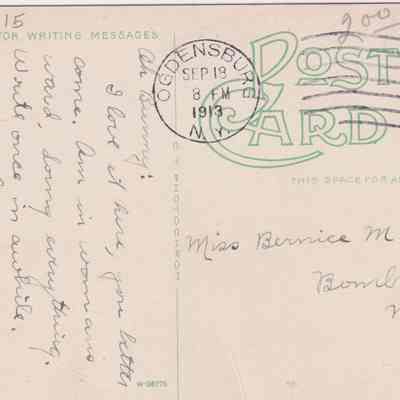 15
FOR WRITING MESSAGES
Oh Bunny:
I love it here, you better
come. Am in woman's
ward, doing everything.
Write once in awhile.
OGDENSBURG
SEP 18
8 PM
1913
N.Y.
200
POST
CARD
THIS SPACE FOR A
Miss Bernice M.
Bomb
W-98775